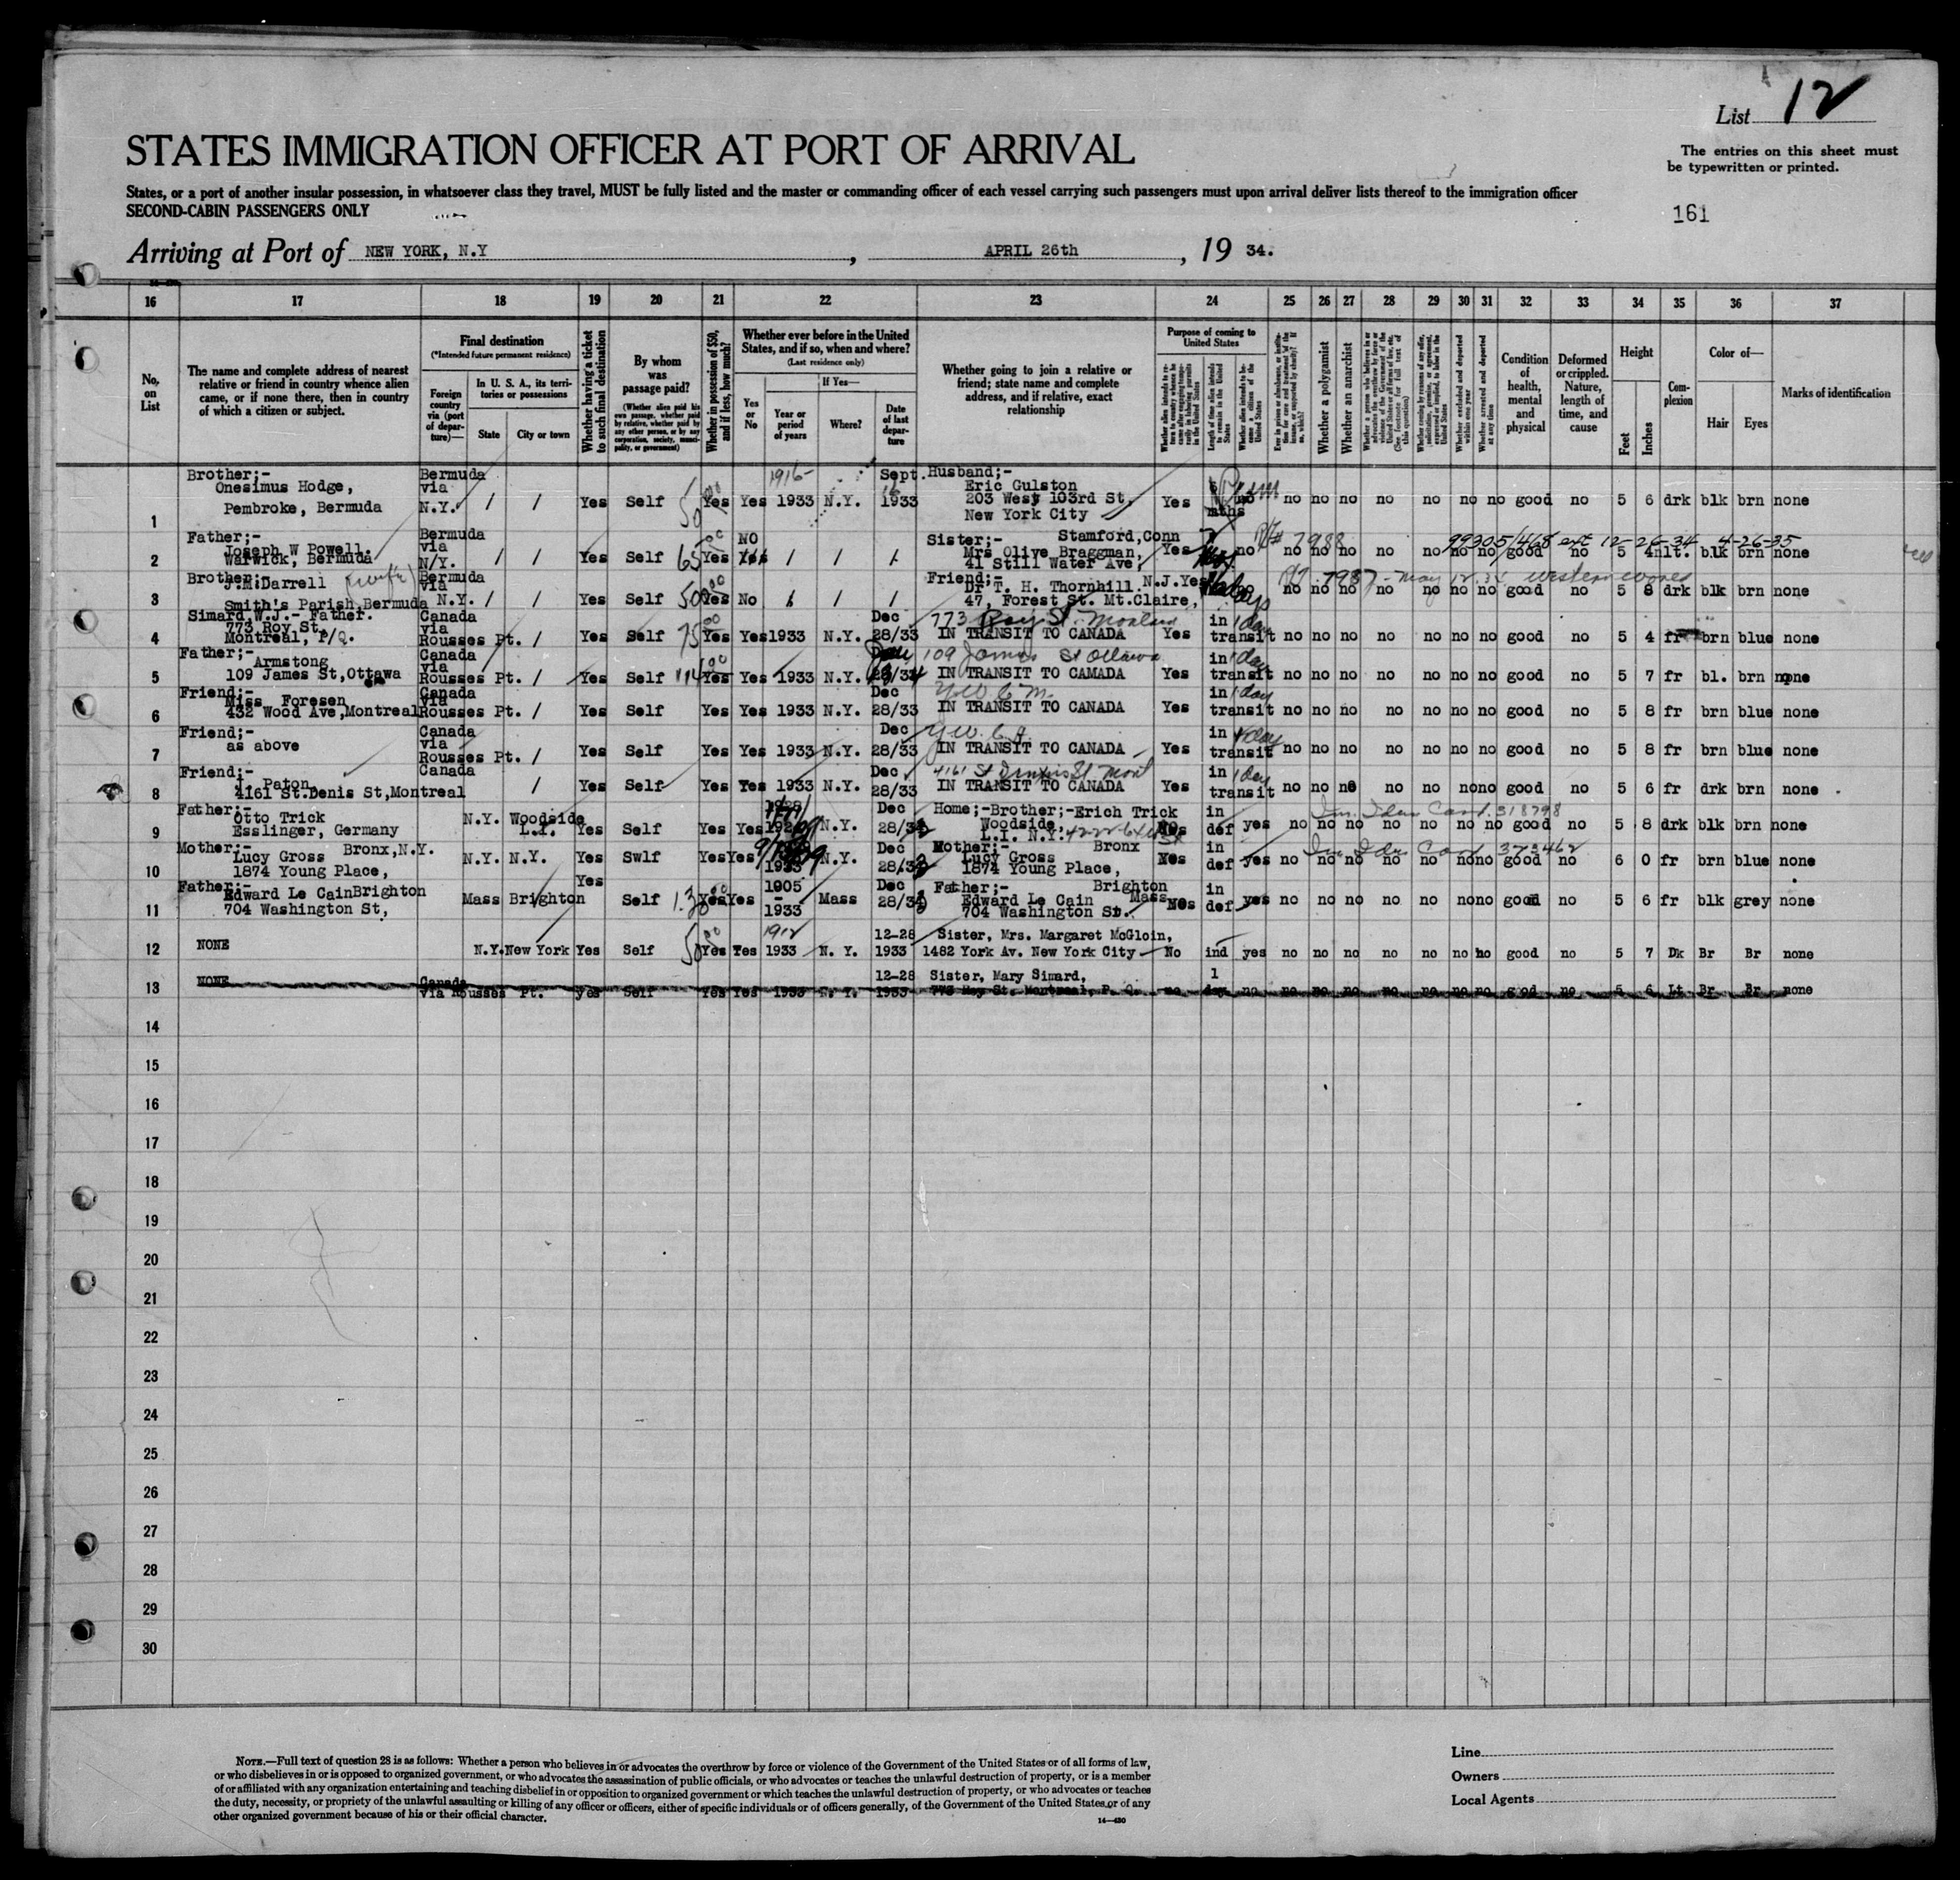 List 12
STATES IMMIGRATION OFFICER AT PORT OF ARRIVAL
The entries on this sheet must
be typewritten or printed.
States, or a port of another insular possession, in whatsoever class they travel, MUST be fully listed and the master or commanding officer of each vessel carrying such passengers must upon arrival deliver lists thereof to the immigration officer
SECOND-CABIN PASSENGERS ONLY
161
Arriving at Port of NEW YORK, N.Y , APRIL 26th , 19 34.
16 17 18 19 20 21 22 23 24 25 26 27 28 29 30 31 32 33 34 35 36 37
No. on List
The name and complete address of nearest relative or friend in country whence alien came, or if none there, then in country of which a citizen or subject.
Final destination
(*Intended future permanent residence)
Foreign country via (port of departure)—
In U. S. A., its territories or possessions
State
City or town
Whether having a ticket to such final destination
By whom was passage paid?
(Whether alien paid his own passage, whether paid by relative, whether paid by any other person, or by any corporation, society, municipality, or government)
Whether in possession of $50, and if less, how much?
Whether ever before in the United States, and if so, when and where?
(Last residence only)
Yes or No
If Yes—
Year or period of years
Where?
Date of last departure
Whether going to join a relative or friend; state name and complete address, and if relative, exact relationship
Purpose of coming to United States
Length of time alien intends to remain in the United States
Whether alien intends to become a citizen of the United States
Whether a polygamist
Whether an anarchist
Whether excluded and deported within one year
Whether arrested and deported at any time
Condition of health, mental and physical
Deformed or crippled. Nature, length of time, and cause
Height
Feet
Inches
Complexion
Color of—
Hair
Eyes
Marks of identification
1 Brother;- Onesimus Hodge, Pembroke, Bermuda Bermuda via N.Y. / / Yes Self 50 Yes Yes 1916- 1933 N.Y. Sept. 1933 Husband;- Eric Gulston 203 West 103rd St, New York City Yes mths no no no no no no no no good no 5 6 drk blk brn none
2 Father;- Joseph W Powell. Warwick, Bermuda Bermuda via N/Y. / / Yes Self 65 Yes NO / / / Sister;- Stamford,Conn Mrs Olive Braggman, 41 Still Water Ave, Yes no 7988 no no no no no no no good no 5 4 lt. blk brn none
99305/468 ext 12-26-34 4-26-35
3 Brother;- J.M.Darrell (wife) Smith's Parish,Bermuda Bermuda via N.Y. / / Yes Self 50 Yes No / / / Friend;- Dr T. H. Thornhill. N.J. 47, Forest St. Mt.Claire, Yes 7987 - May 12.34 no no no no no no no good no 5 8 drk blk brn none
4 Simard,W.J.- Father. 773 Roy St, Montreal, P/Q. Canada via Rousses Pt. / Yes Self 75 Yes Yes 1933 N.Y. Dec 28/33 773 Roy St. IN TRANSIT TO CANADA Yes in transit 1 day no no no no no no no good no 5 4 fr brn blue none
5 Father;- Armstong 109 James St,Ottawa Canada via Rousses Pt. / Yes Self Yes Yes 1933 N.Y. 109 James St Ottawa IN TRANSIT TO CAMADA Yes in transit 1 day no no no no no no no good no 5 7 fr bl. brn none
6 Friend;- Miss Foresen 432 Wood Ave,Montreal Canada via Rousses Pt. / Yes Self Yes Yes 1933 N.Y. Dec 28/33 IN TRANSIT TO CANADA Yes in transit 1 day no no no no no no no good no 5 8 fr brn blue none
7 Friend;- as above Canada via Rousses Pt. / Yes Self Yes Yes 1933 N.Y. Dec 28/33 Y.W.C.A. IN TRANSIT TO CANADA Yes in transit 1 day no no no no no no no good no 5 8 fr brn blue none
8 Friend;- Paton 4161 St.Denis St,Montreal Canada / Yes Self Yes Yes 1933 N.Y. Dec 28/33 4161 St Denis St Mont IN TRANSIT TO CANADA Yes in transit 1 day no no no no no no no good no 5 6 fr drk brn none
9 Father;- Otto Trick Esslinger, Germany N.Y. Woodside L.I. Yes Self Yes Yes N.Y. Dec 28/33 Home;-Brother;-Erich Trick Woodside, L.I. N.Y. in def yes 318798 no no no no no no no good no 5 8 drk blk brn none
10 Mother;- Bronx,N.Y. Lucy Gross 1874 Young Place, N.Y. N.Y. Yes Swlf Yes Yes 1933 N.Y. Dec 28/33 Mother;- Bronx Lucy Gross 1874 Young Place, in def yes 373462 no no no no no no no good no 6 0 fr brn blue none
11 Father;- Edward Le Cain Brighton 704 Washington St, Mass Brighton Yes Self Yes Yes 1905 - 1933 Mass Dec 28/33 Father;- Brighton Edward Le Cain Mass 704 Washington St. in def yes no no no no no no no good no 5 6 fr blk grey none
12 NONE N.Y. New York Yes Self 50 Yes Yes 1912 1933 N. Y. 12-28 1933 Sister, Mrs. Margaret McGloin, 1482 York Av. New York City No ind yes no no no no no no no good no 5 7 Dk Br Br none
13 NONE Canada via Rousses Pt. yes Self Yes Yes 1933 N. Y. 12-28 1933 Sister, Mary Simard, 773 Roy St. Montreal, P. Q. no 1 day no no no no no no no no good no 5 6 Lt Br Br none
14
15
16
17
18
19
20
21
22
23
24
25
26
27
28
29
30
NOTE.—Full text of question 28 is as follows: Whether a person who believes in or advocates the overthrow by force or violence of the Government of the United States or of all forms of law,
or who disbelieves in or is opposed to organized government, or who advocates the assassination of public officials, or who advocates or teaches the unlawful destruction of property, or is a member
of or affiliated with any organization entertaining and teaching disbelief in or opposition to organized government or which teaches the unlawful destruction of property, or who advocates or teaches
the duty, necessity, or propriety of the unlawful assaulting or killing of any officer or officers, either of specific individuals or of officers generally, of the Government of the United States or of any
other organized government because of his or their official character.
14—430
Line
Owners
Local Agents